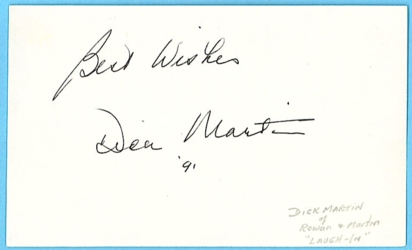 Best Wishes
Dick Martin
'91
DICK MARTIN
of
ROWAN & MARTIN
"LAUGH-IN"